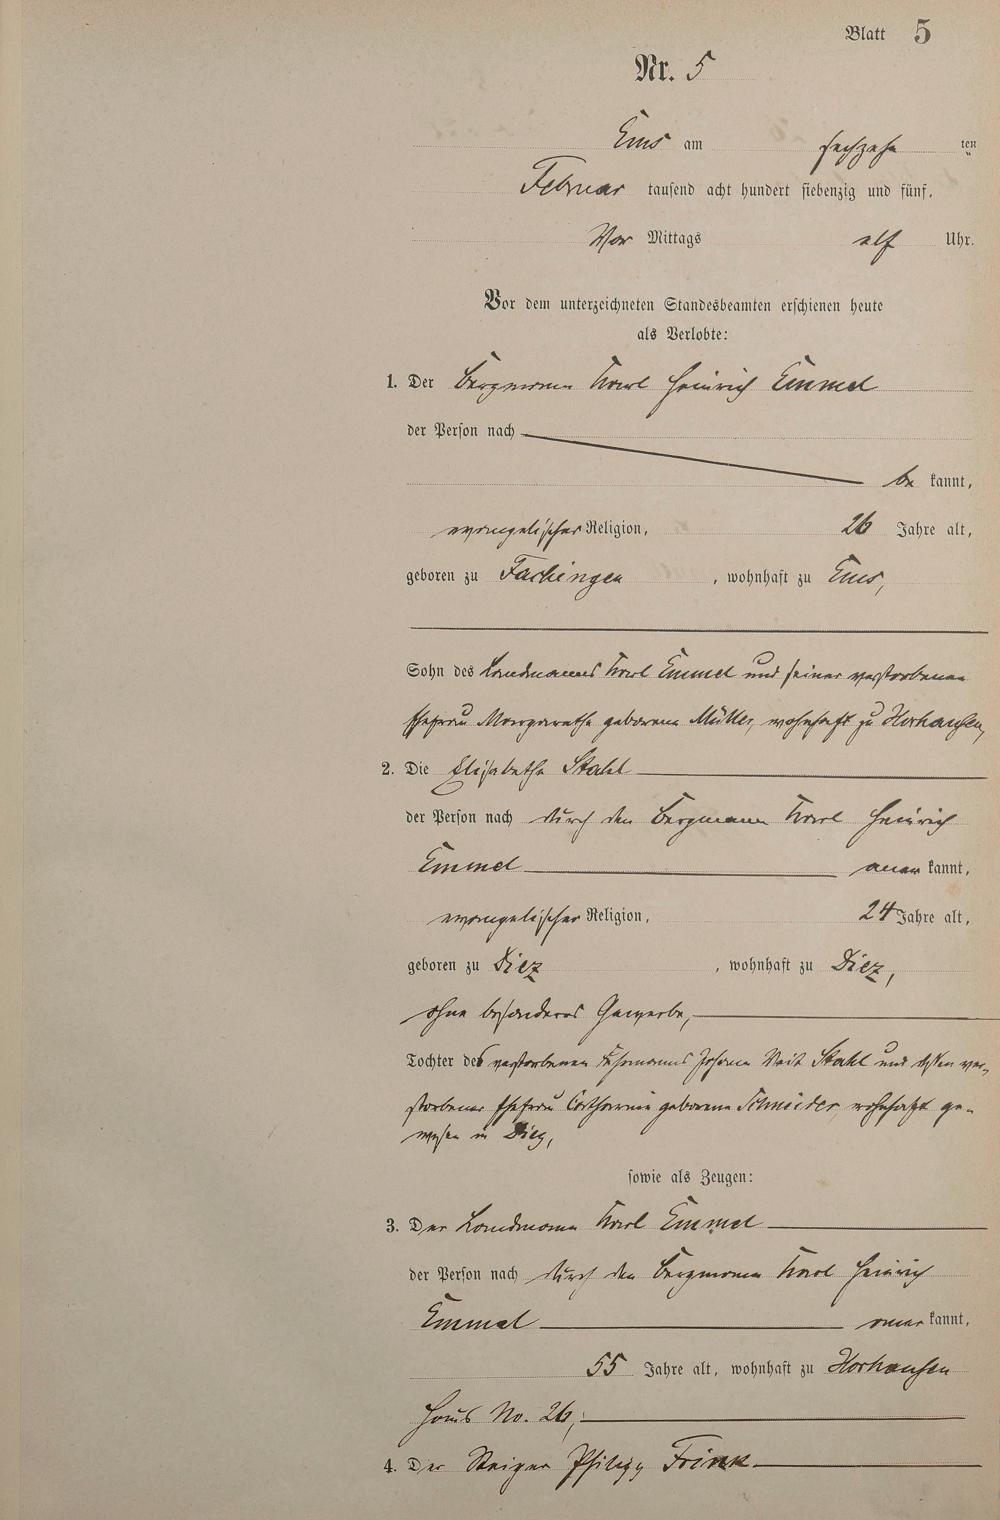 Blatt 5
Nr. 5
Ems am sechzehn ten
Februar tausend acht hundert siebenzig und fünf.
Vor Mittags elf Uhr.
Vor dem unterzeichneten Standesbeamten erschienen heute
als Verlobte:
1. Der Bergmann Karl Heinrich Emmel
der Person nach
be kannt,
evangelischer Religion, 26 Jahre alt,
geboren zu Fachingen, wohnhaft zu Ems,
Sohn des Landmannes Karl Emmel und seiner verstorbenen
Ehefrau Margaretha geborene Müller, wohnhaft zu Horhausen,
2. Die Elisabetha Stahl
der Person nach durch den Bergmann Karl Heinrich
Emmel aner kannt,
evangelischer Religion, 24 Jahre alt,
geboren zu Diez, wohnhaft zu Diez,
ohne besonderes Gewerbe,
Tochter des verstorbenen Johann Veit Stahl und dessen ver-
storbener Ehefrau Catharina geborene Schneider, wohnhaft ge-
wesen in Diez,
sowie als Zeugen:
3. Der Landmann Karl Emmel
der Person nach durch den Bergmann Karl Heinrich
Emmel aner kannt,
55 Jahre alt, wohnhaft zu Horhausen
Haus No. 26,
4. Der Steiger Philipp Frink